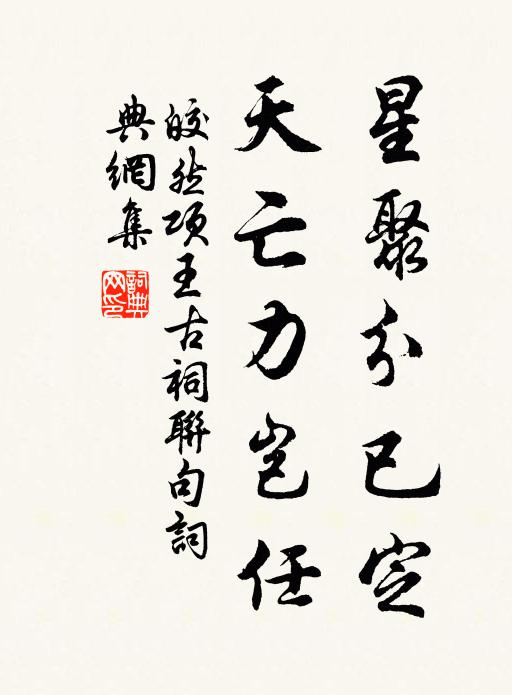 星聚分已定
天亡力岂任
皎然项王古祠聯句詞
典網集
詞典网印